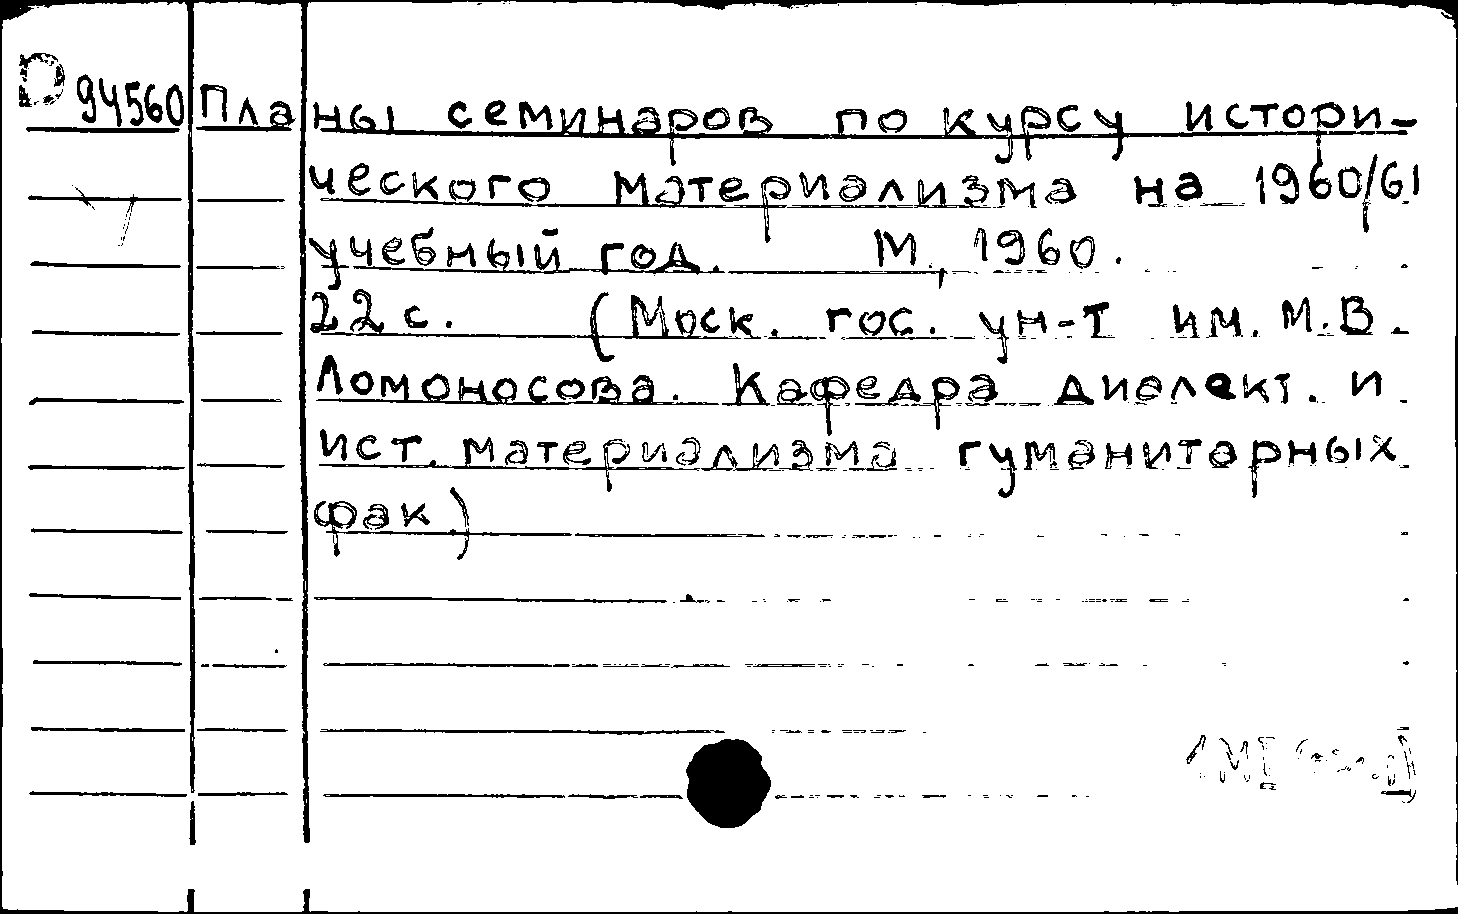 D 94560 Планы семинаров по курсу истори-
ческого материализма на 1960/61
учебный год. М., 1960.
22 с. (Моск. гос. ун-т им. М.В.
Ломоносова. Кафедра диалект. и
ист. материализма гуманитарных
фак.)